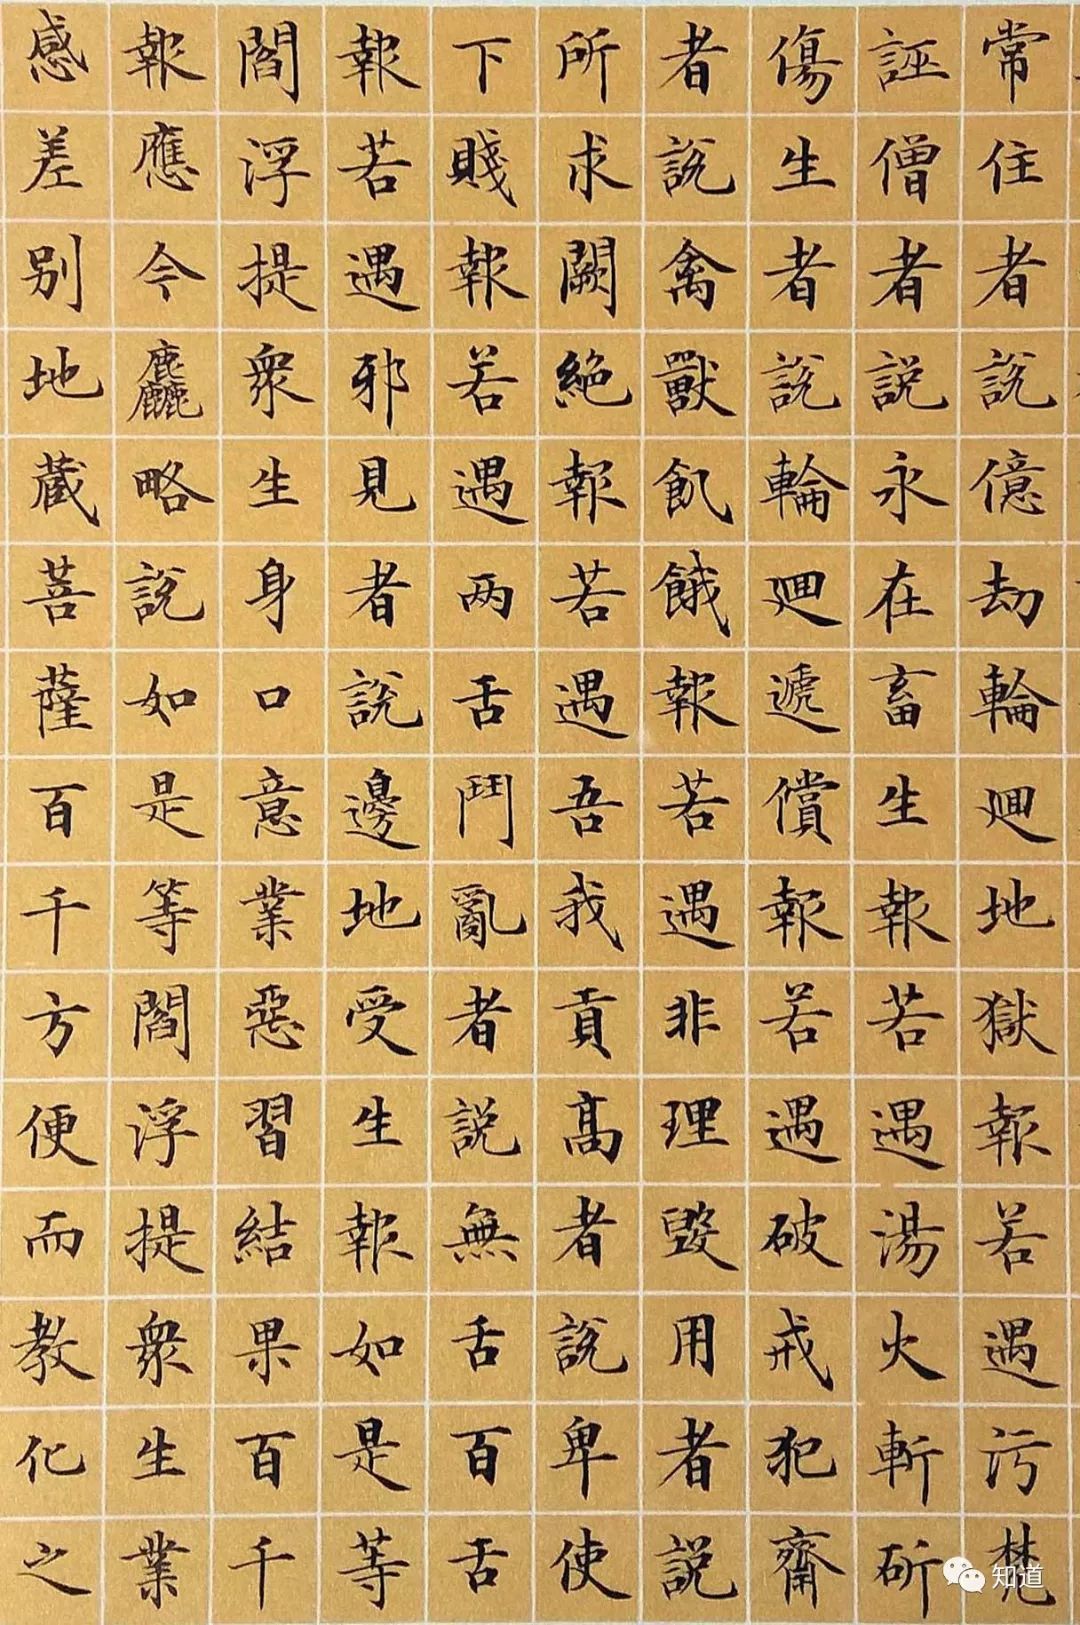 常住者說億劫輪迴地獄報若遇污梵
誣僧者說永在畜生報若遇湯火斬斫
傷生者說輪迴遞償報若遇破戒犯齋
者說禽獸飢餓報若遇非理毀用者說
所求闕絶報若遇吾我貢高者說卑使
下賤報若遇兩舌鬥亂者說無舌百舌
報若遇邪見者說邊地受生報如是等
閻浮提衆生身口意業惡習結果百千
報應今麤略說如是等閻浮提衆生業
感差别地蔵菩薩百千方便而教化之
知道